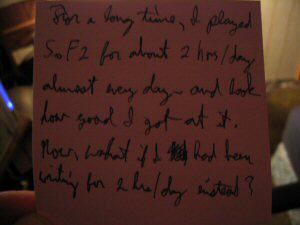 For a long time, I played
SoF2 for about 2 hrs/day
almost every day - and look
how good I got at it.
Now, what if I had been
writing for 2 hrs/day instead?